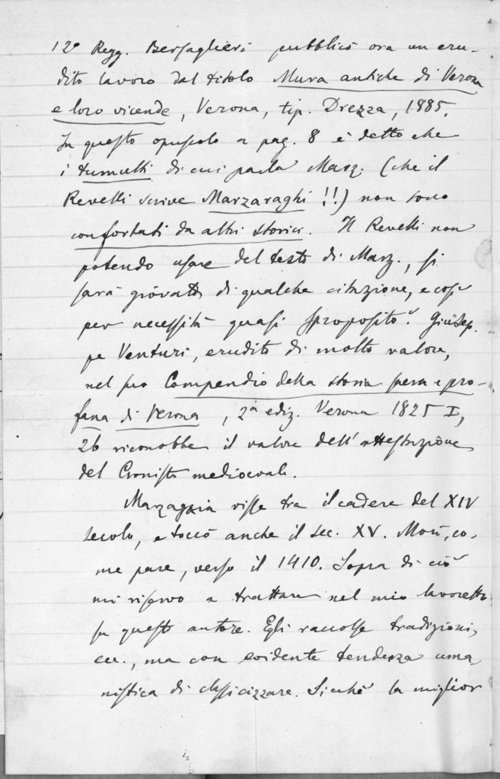 12º Regg. Bersaglieri pubblicò ora un eru-
dito lavoro dal titolo Mura antiche di Verona
e loro vicende, Verona, tip. Drezza, 1885.
In questo opuscolo a pag. 8 è detto che
i tumulti di cui parla Marz. (che il
Revelli scrive Marzaraghi !!) non sono
confortati da altri storici. Il Revelli non
potendo usare del testo di Marz., si
sarà giovato di qualche citazione, e così
per necessità quasi spropositò. Giusep-
pe Venturi, erudito di molto valore,
nel suo Compendio della storia sacra e pro-
fana di Verona, 2ª ediz. Verona 1825 I,
26 riconobbe il valore dell'attestazione
del Cronista medioevale.
Marzagaia visse tra il cadere del XIV
secolo, e toccò anche il sec. XV. Morì, co-
me pare, verso il 1410. Sopra di ciò
mi riservo a trattare nel mio lavoretto
su questo autore. Egli raccolse tradizioni,
ecc., ma con evidente tendenza uma-
nistica di classicizzare. Sicchè la miglior